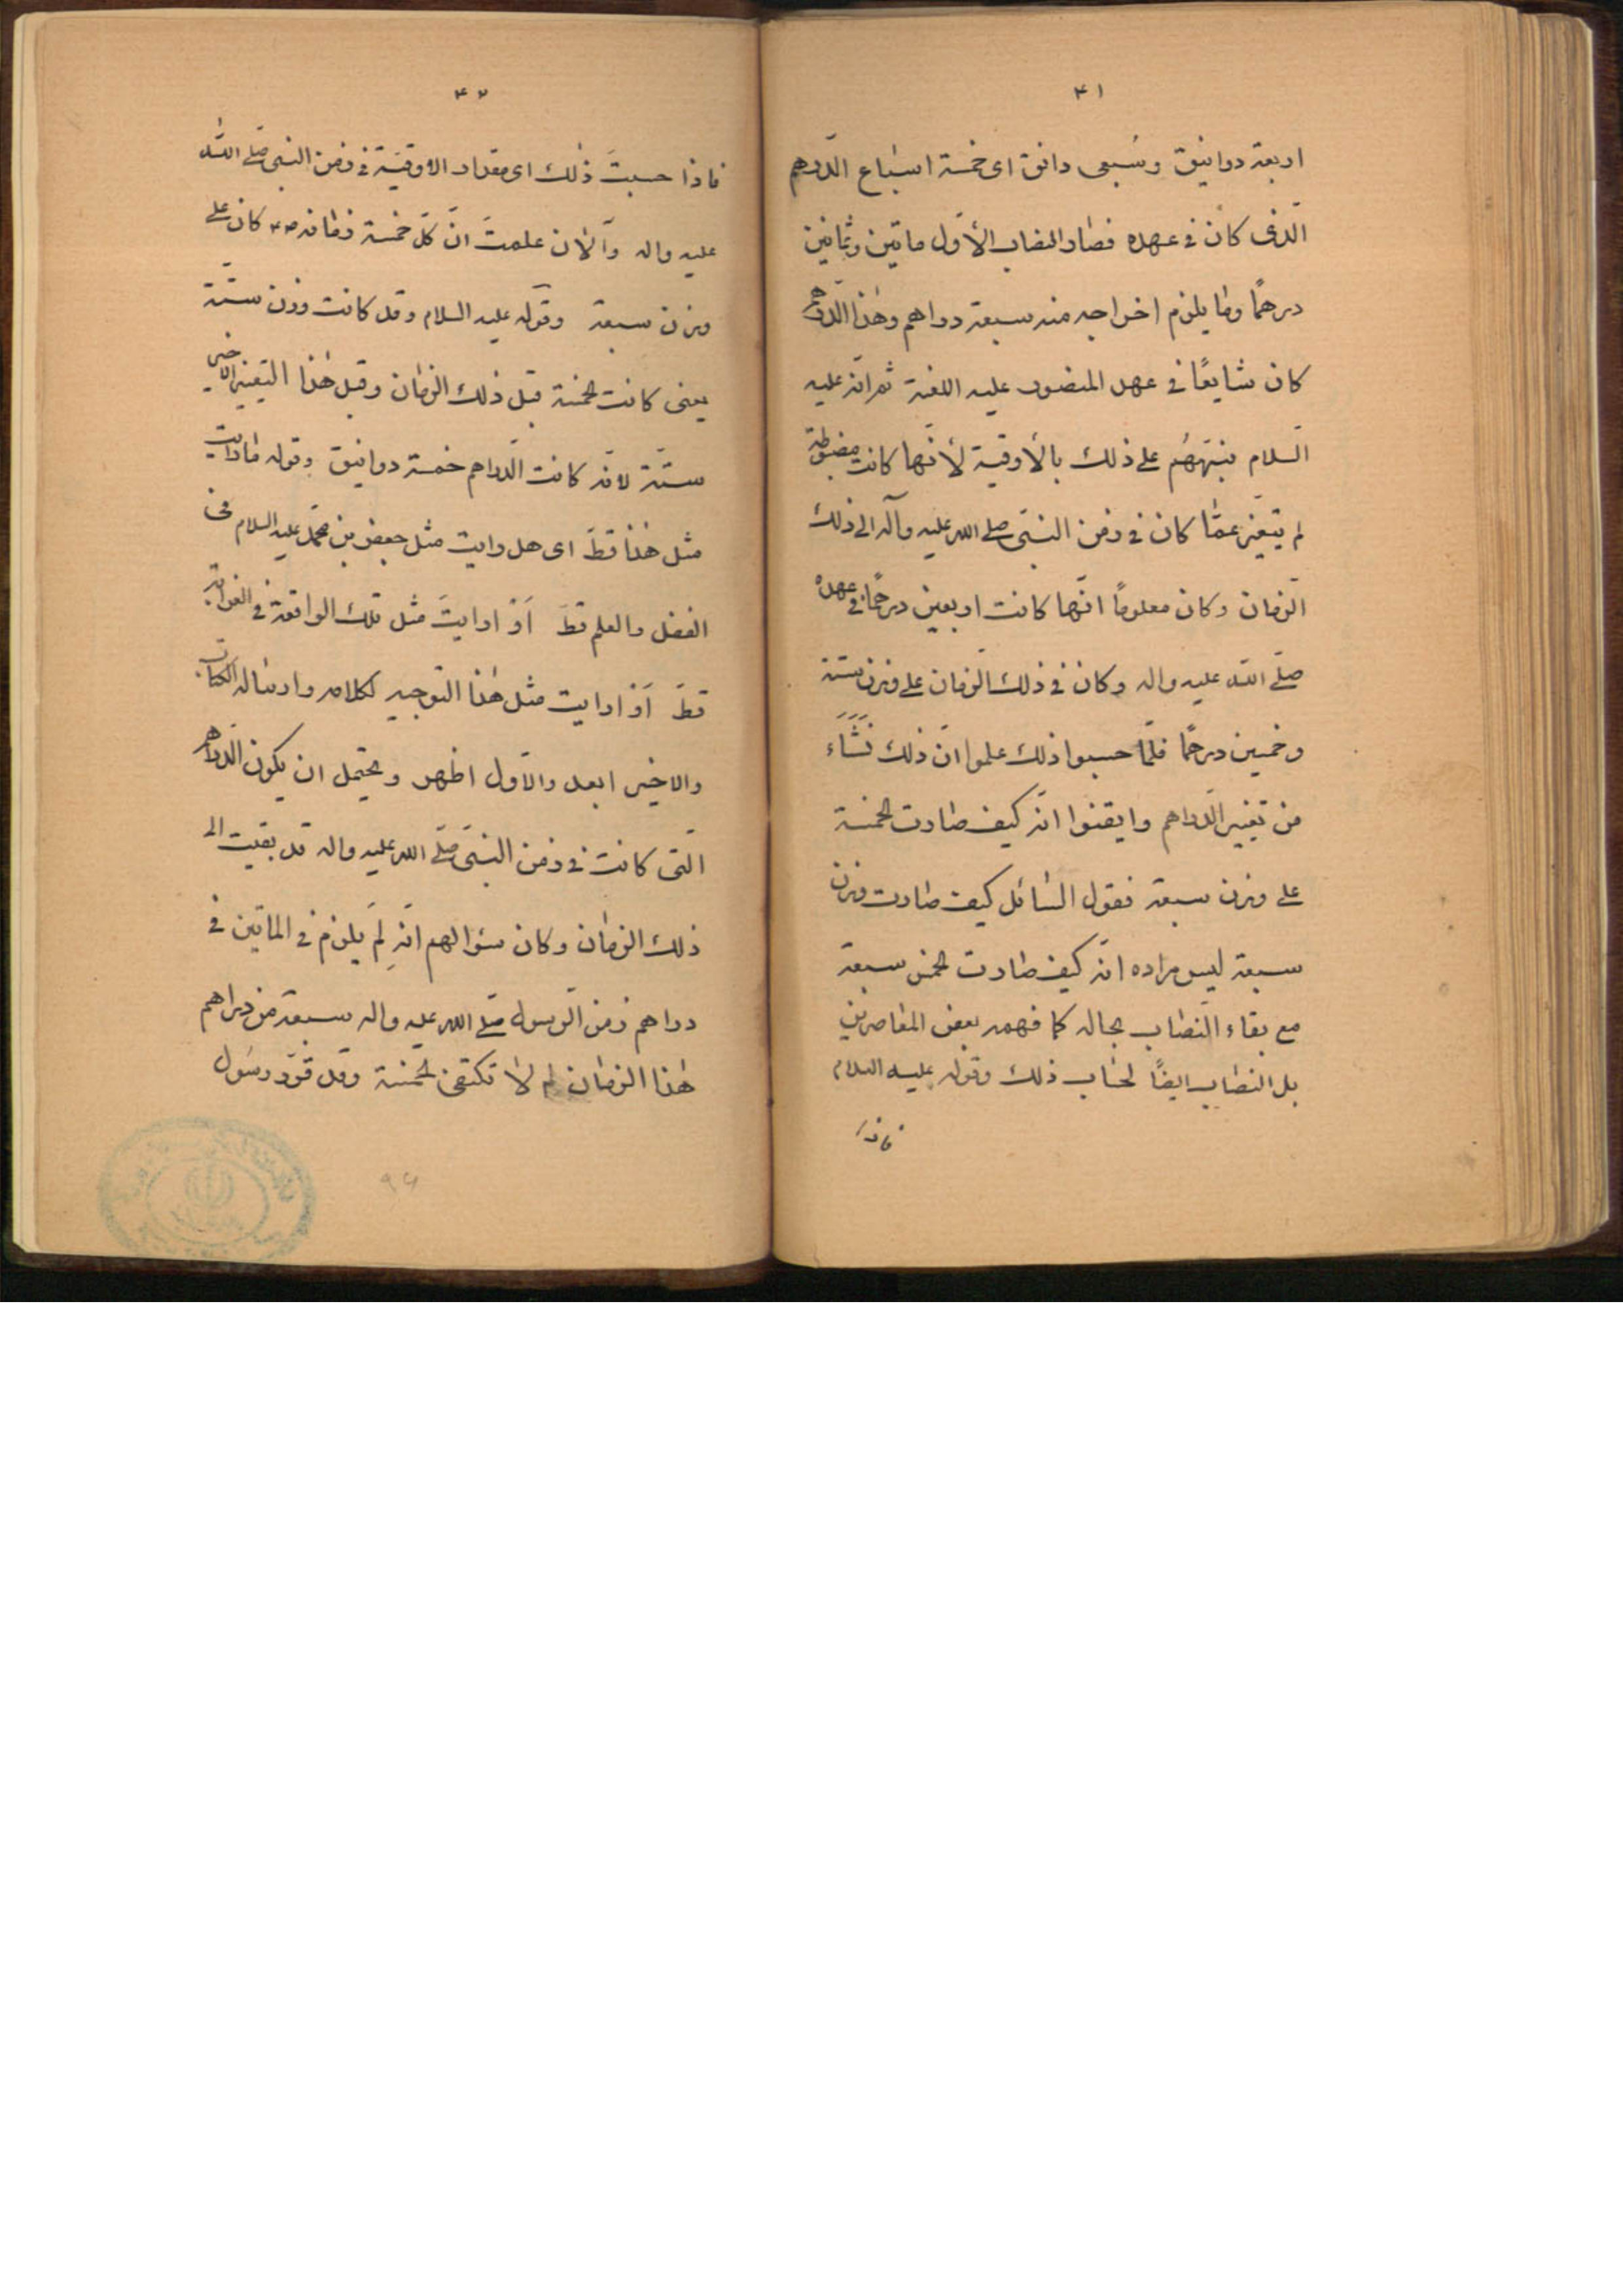 ۴۱
اربعة دوانيق وسُبعى دانق اى خمسة اسباع الدّرهم
الّذى كان فى عهده فصار النصاب الأوّل مأتين وثمانين
درهمًا وما يلزم اخراجه منه سبعة دراهم وهذا الدّرهم
كان شايعًا فى عهد المنصور عليه اللعنة ثم انّه عليه
السّلام نبّههُم على ذلك بالأوقية لأنّها كانت مضبوطة
لم يتغيّر عمّا كان فى زمن النبىّ صلى الله عليه وآله الى ذلك
الزمان وكان معلومًا انّها كانت اربعين درهمًا فى عهده
صلّى الله عليه واله وكان فى ذلك الزمان على وزن ستة
وخمسين درهمًا فلمّا حسبوا ذلك علموا انّ ذلك نَشَأَ
من تغيير الدّراهم وايقنوا انّه كيف صارت الخمسة
على وزن سبعة فقول السّائل كيف صارت وزن
سبعة ليس مراده انّه كيف صارت الخمس سبعة
مع بقاء النّصاب بحاله كما فهمه بعض المعاصرين
بل النصاب ايضًا لحساب ذلك وقوله عليه السلام
فاذا
۴۲
فاذا حسبتَ ذٰلك اى مقدار الاوقيّة فى زمن النبى صلى الله
عليه واله والآن علمتَ انّ كلّ خمسة زمانه ص كان على
وزن سبعة وقوله عليه السلام وقد كانت وزن ستّة
يعنى كانت الخمسة قبل ذلك الزمان وقبل هذا التغيير الاخير
ستّة لانّه كانت الدّراهم خمسة دوانيق وقوله ما رايت
مثل هذا قطّ اى هل رايت مثل جعفر بن محمّد عليه السلام فى
الفضل والعلم قطّ أو ما رايتَ مثل تلك الواقعة فى الغرابة
قطّ أو ما رايت مثل هذا التوجيه لكلامه وارساله الكتاب
والاخير ابعد والاوّل اظهر ويحتمل ان يكون الدّراهم
الّتى كانت فى زمن النبىّ صلّى الله عليه واله قد بقيت الى
ذلك الزمان وكان سؤالهم انّه لِمَ يلزم فى المأتين فى
دراهم زمن الرّسول صلى الله عليه واله سبعة من دراهم
هٰذا الزمان لم لا تكتفى الخمسة وقد قرّر رسُول
۹۴